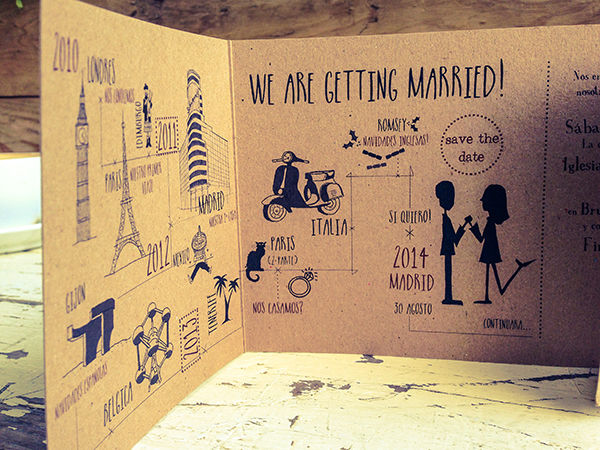 2010
LONDRES
NOS CONOCIMOS
EDIMBURGO
2011
PARIS
NUESTRO PRIMER
VIAJE
MADRID
2012
MEXICO
GIJON
NAVIDADES ESPAÑOLAS
BELGICA
2013
TENERIFE
WE ARE GETTING MARRIED!
ROMSEY
NAVIDADES INGLESAS!
save the
date
ITALIA
PARIS
(2ª PARTE)
NOS CASAMOS?
SI QUIERO!
2014
MADRID
30 AGOSTO
CONTINUARA...
Nos
Sába
La
Iglesia
en
y